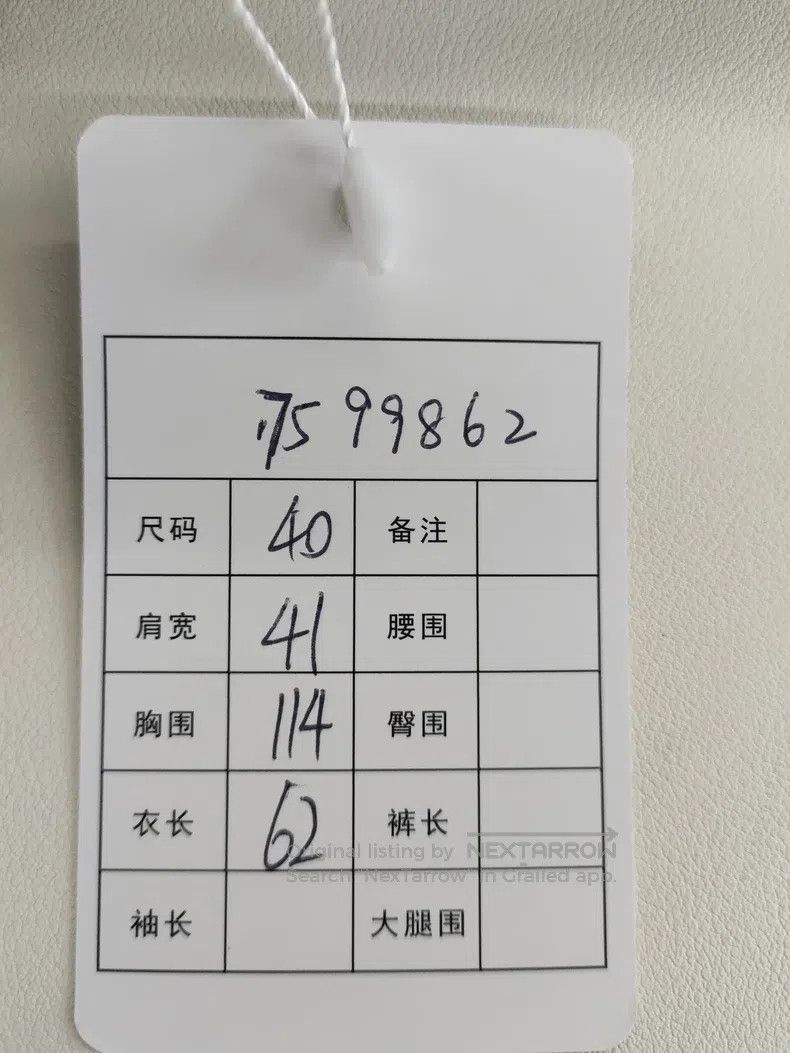 7599862
尺码 40 备注
肩宽 41 腰围
胸围 114 臀围
衣长 62 裤长
袖长 大腿围
Original listing by NEXTARROW
Search "NexTarrow" in Grailed app.